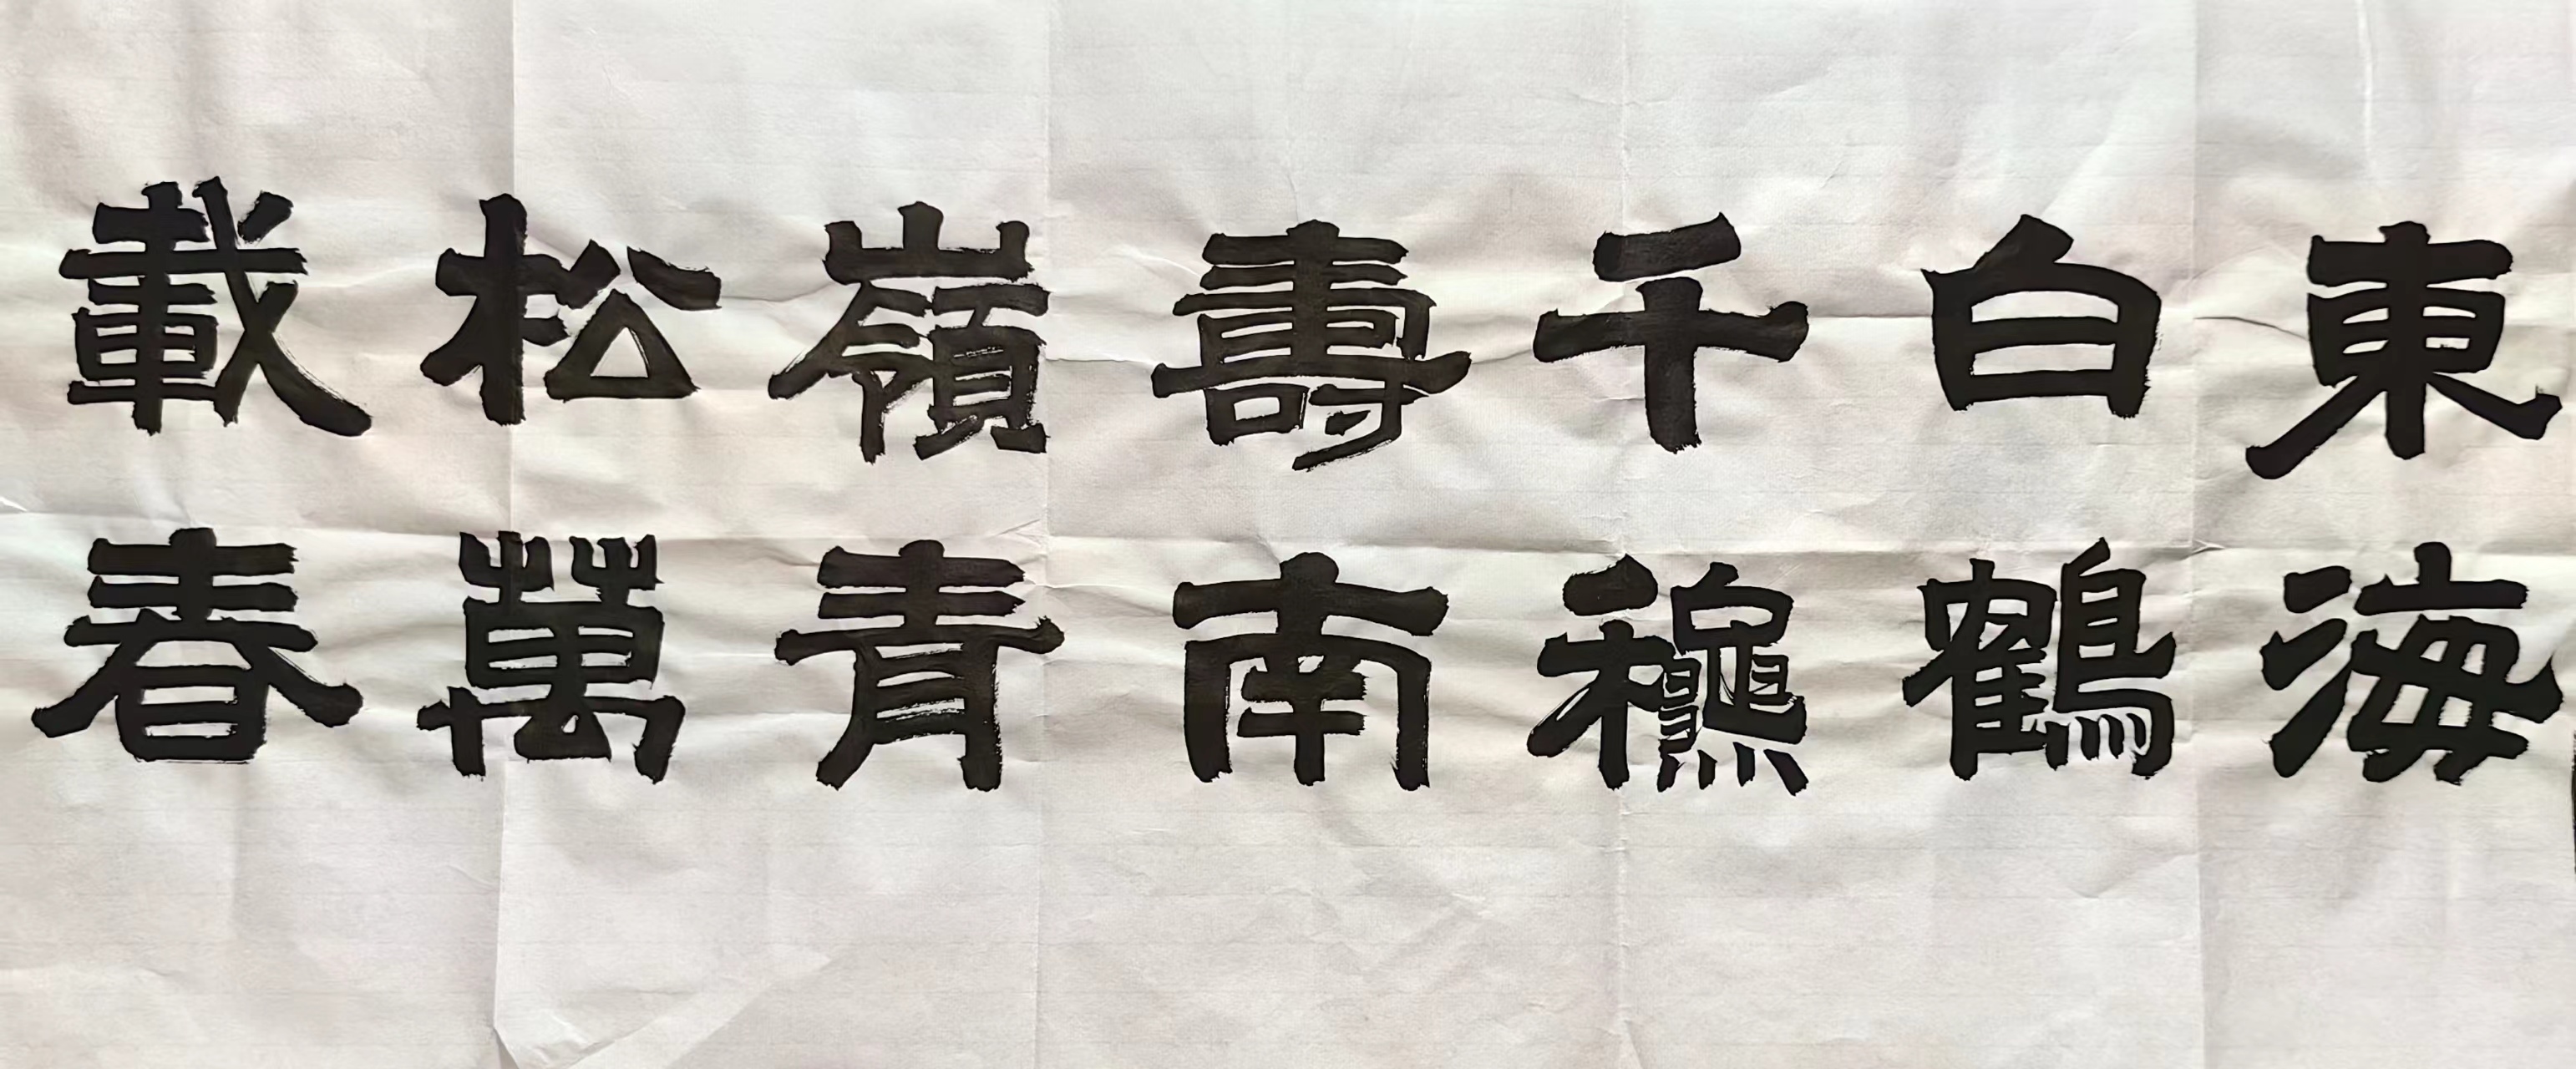 東海
白鶴
千龝
壽南
嶺青
松萬
載春